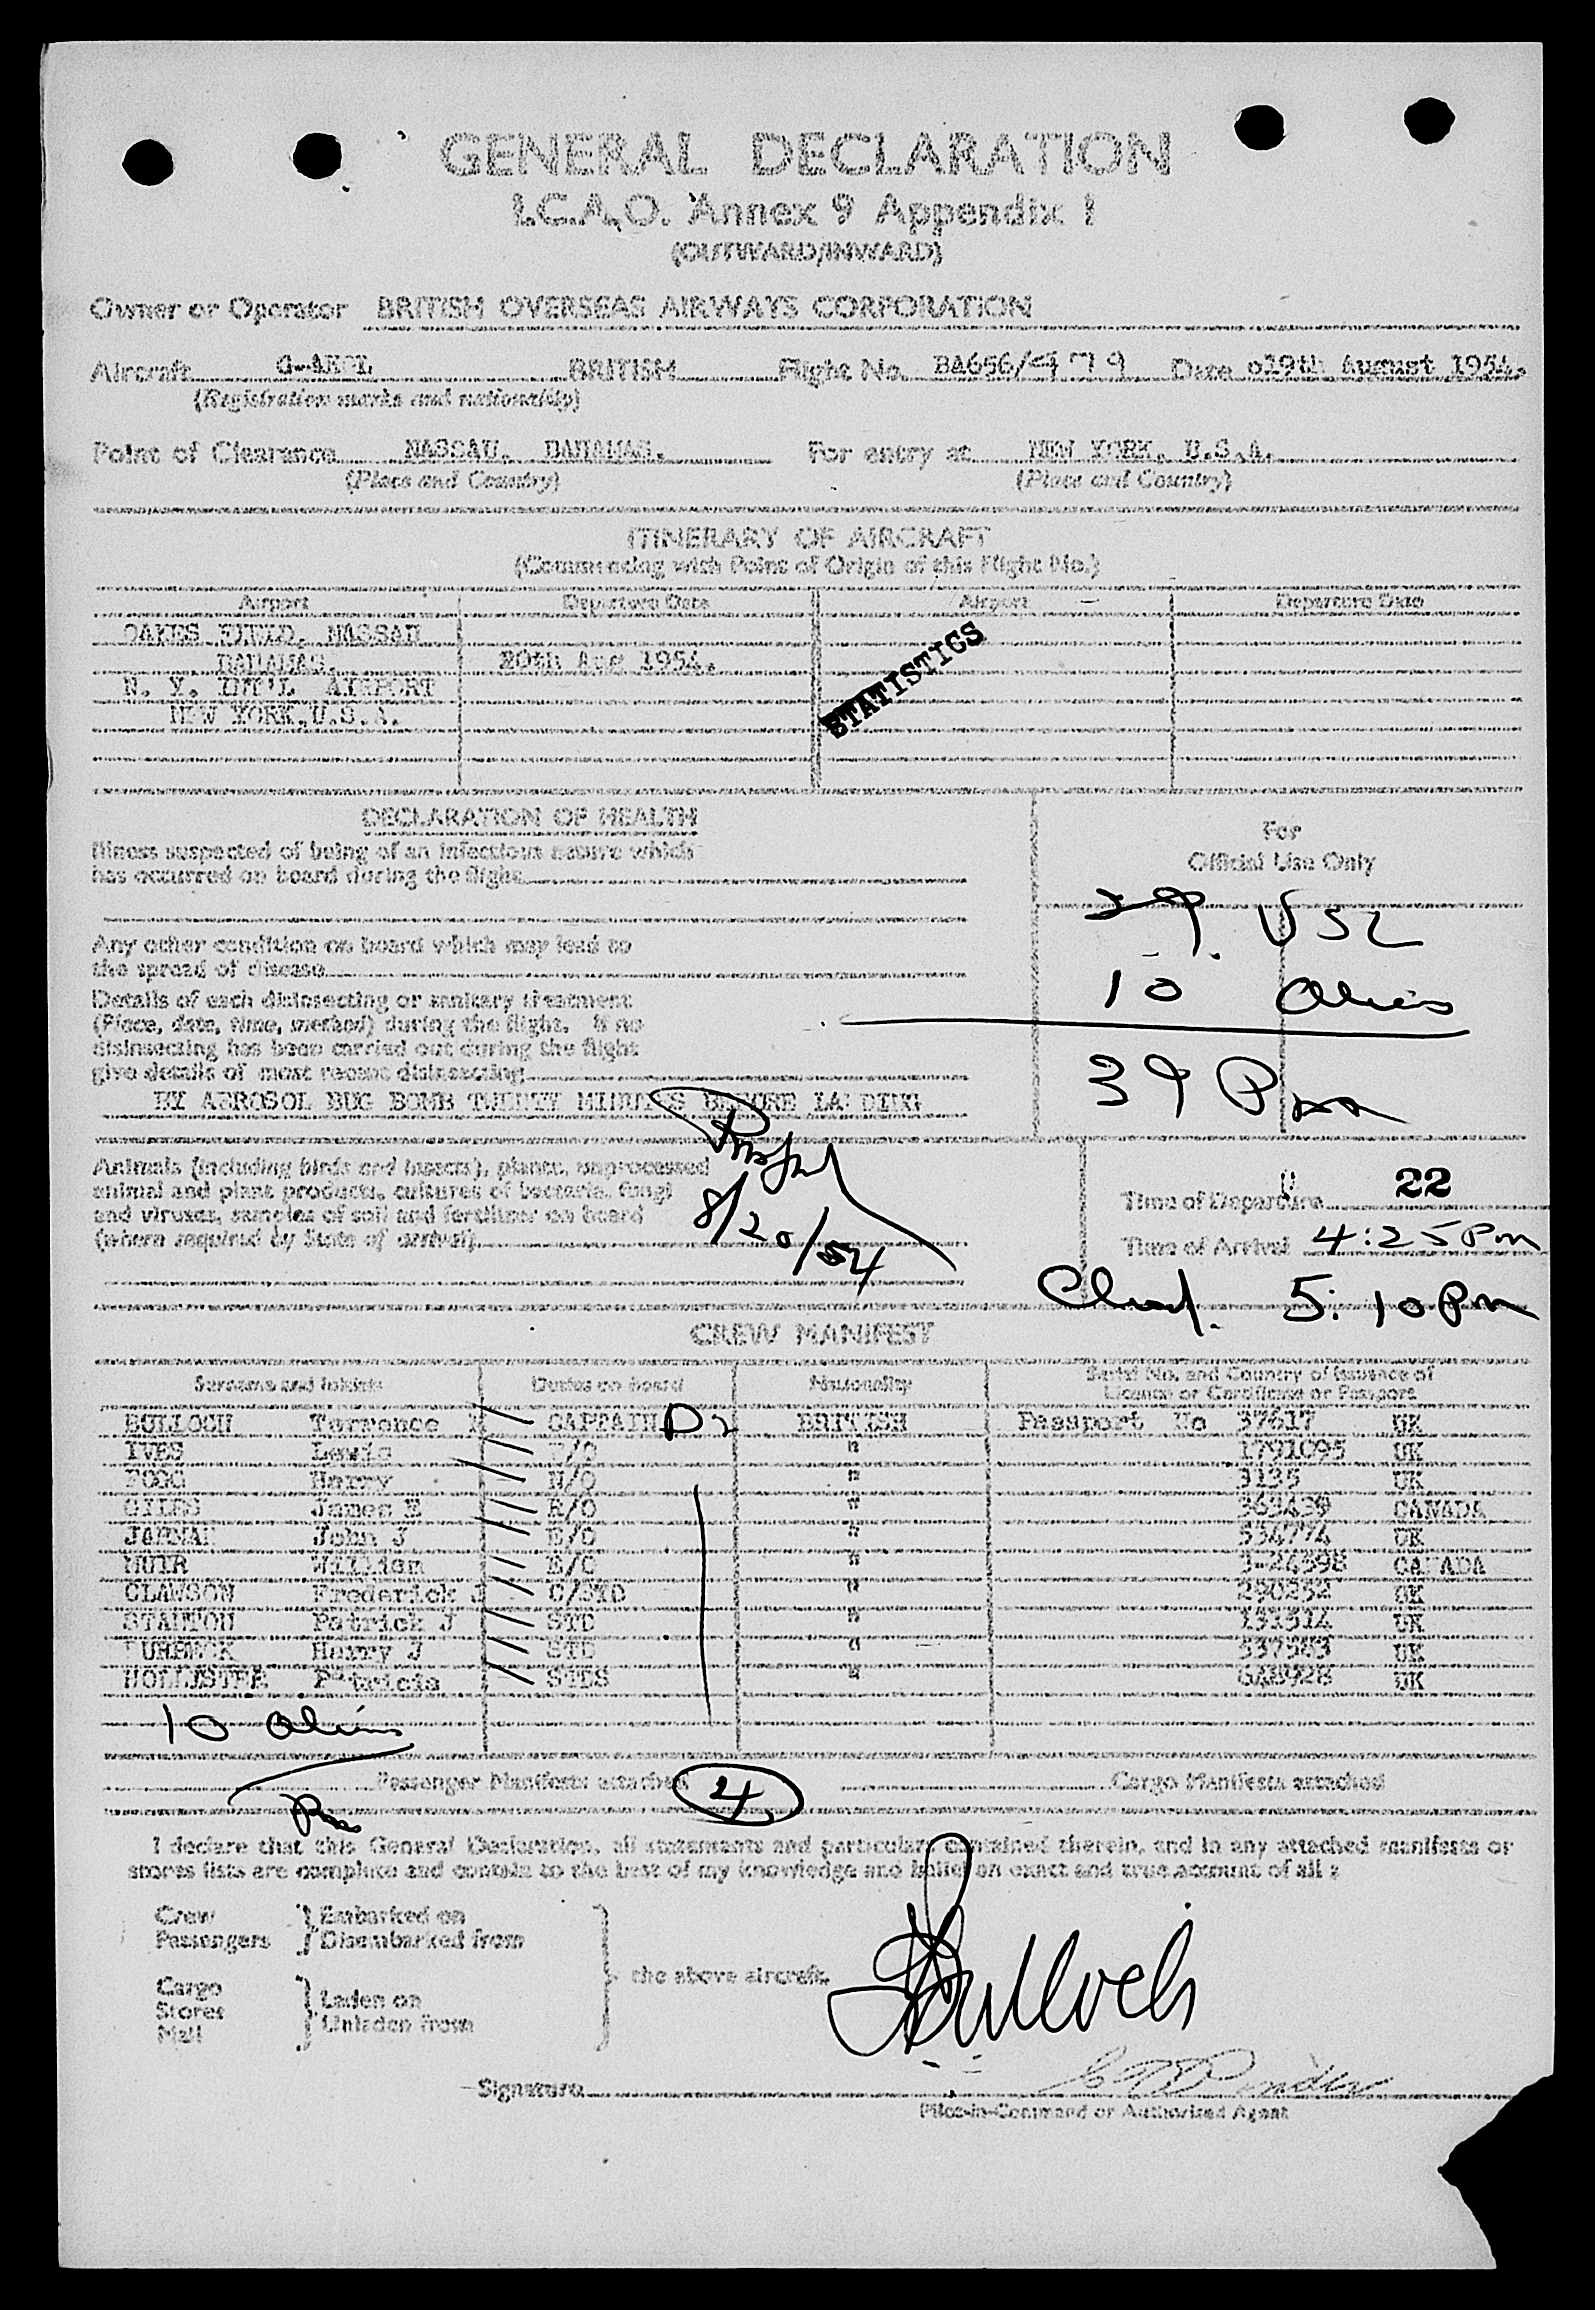 GENERAL DECLARATION
I.C.A.O. Annex 9 Appendix 1
(OUTWARD/INWARD)
Owner or Operator BRITISH OVERSEAS AIRWAYS CORPORATION
Aircraft BRITISH Flight No. BA656/ Date 19th August 1954.
(Registration marks and nationality)
Point of Clearance NASSAU, BAHAMAS. For entry at NEW YORK, U.S.A.
(Place and Country) (Place and Country)
ITINERARY OF AIRCRAFT
(Commencing with Point of Origin of this Flight No.)
Airport Departure Date Airport Departure Date
OAKES FIELD, NASSAU
BAHAMAS. 20th Aug 1954.
N. Y. INT'L AIRPORT
NEW YORK, U.S.A.
STATISTICS
DECLARATION OF HEALTH
Illness suspected of being of an infectious nature which
has occurred on board during the flight
For
Official Use Only
29 USC
Any other condition on board which may lead to
the spread of disease
10 Aliens
Details of each disinsecting or sanitary treatment
(Place, date, time, method) during the flight. If no
disinsecting has been carried out during the flight
give details of most recent disinsecting
39 Pax
BY AEROSOL BUG BOMB TWENTY MINUTES BEFORE LANDING
Animals (including birds and insects), plants, unprocessed
animal and plant products, cultures of bacteria, fungi
and viruses, samples of soil and fertilizer on board
(where required by State of arrival)
8/20/54
Time of Departure 22
Time of Arrival 4:25 Pm
Clrd. 5:10 Pm
CREW MANIFEST
Surname and Initials Duties on board Nationality Serial No. and Country of Issuance of
Licence or Certificate or Passport
BULLOCH Terrence CAPTAIN BRITISH Passport No 37617 UK
IVES Lewis F/O " 1791095 UK
FOGG Harry N/O " 3135 UK
GILES James E R/O " 363439 CANADA
John J E/O " 554774 UK
MUIR William E/O " 3-24398 CANADA
CLAWSON Frederick J C/STD " 290252 UK
STAUNTON Patrick J STD " 131514 UK
Harry J STD " 337563 UK
HOLLISTER Patricia STDS " UK
10 Aliens
Passenger Manifests attached 4 Cargo Manifests attached
I declare that this General Declaration, all statements and particulars contained therein, and in any attached manifests or
stores lists are complete and contain to the best of my knowledge and belief an exact and true account of all :
Crew } Embarked on
Passengers } Disembarked from
the above aircraft.
Cargo } Laden on
Stores } Unladen from
Mail
Bulloch
Signature
Pilot-in-Command or Authorised Agent